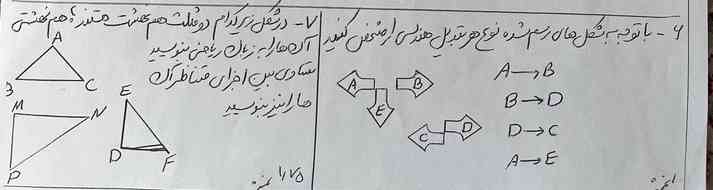 ۶- با توجه به شکل های رسم شده نوع هر تبدیل هندسی را مشخص کنید
A → B
B → D
D → C
A → E
A
B
E
C
D
۱ نمره
۷- در شکل زیر کدام دو مثلث هم نهشت هستند؟ هم نهشتی
آن ها را به زبان ریاضی بنویسید
تساوی بین اجزای متناظر آن
ها را نیز بنویسید
A
B
C
M
N
P
E
D
F
۱/۷۵ نمره